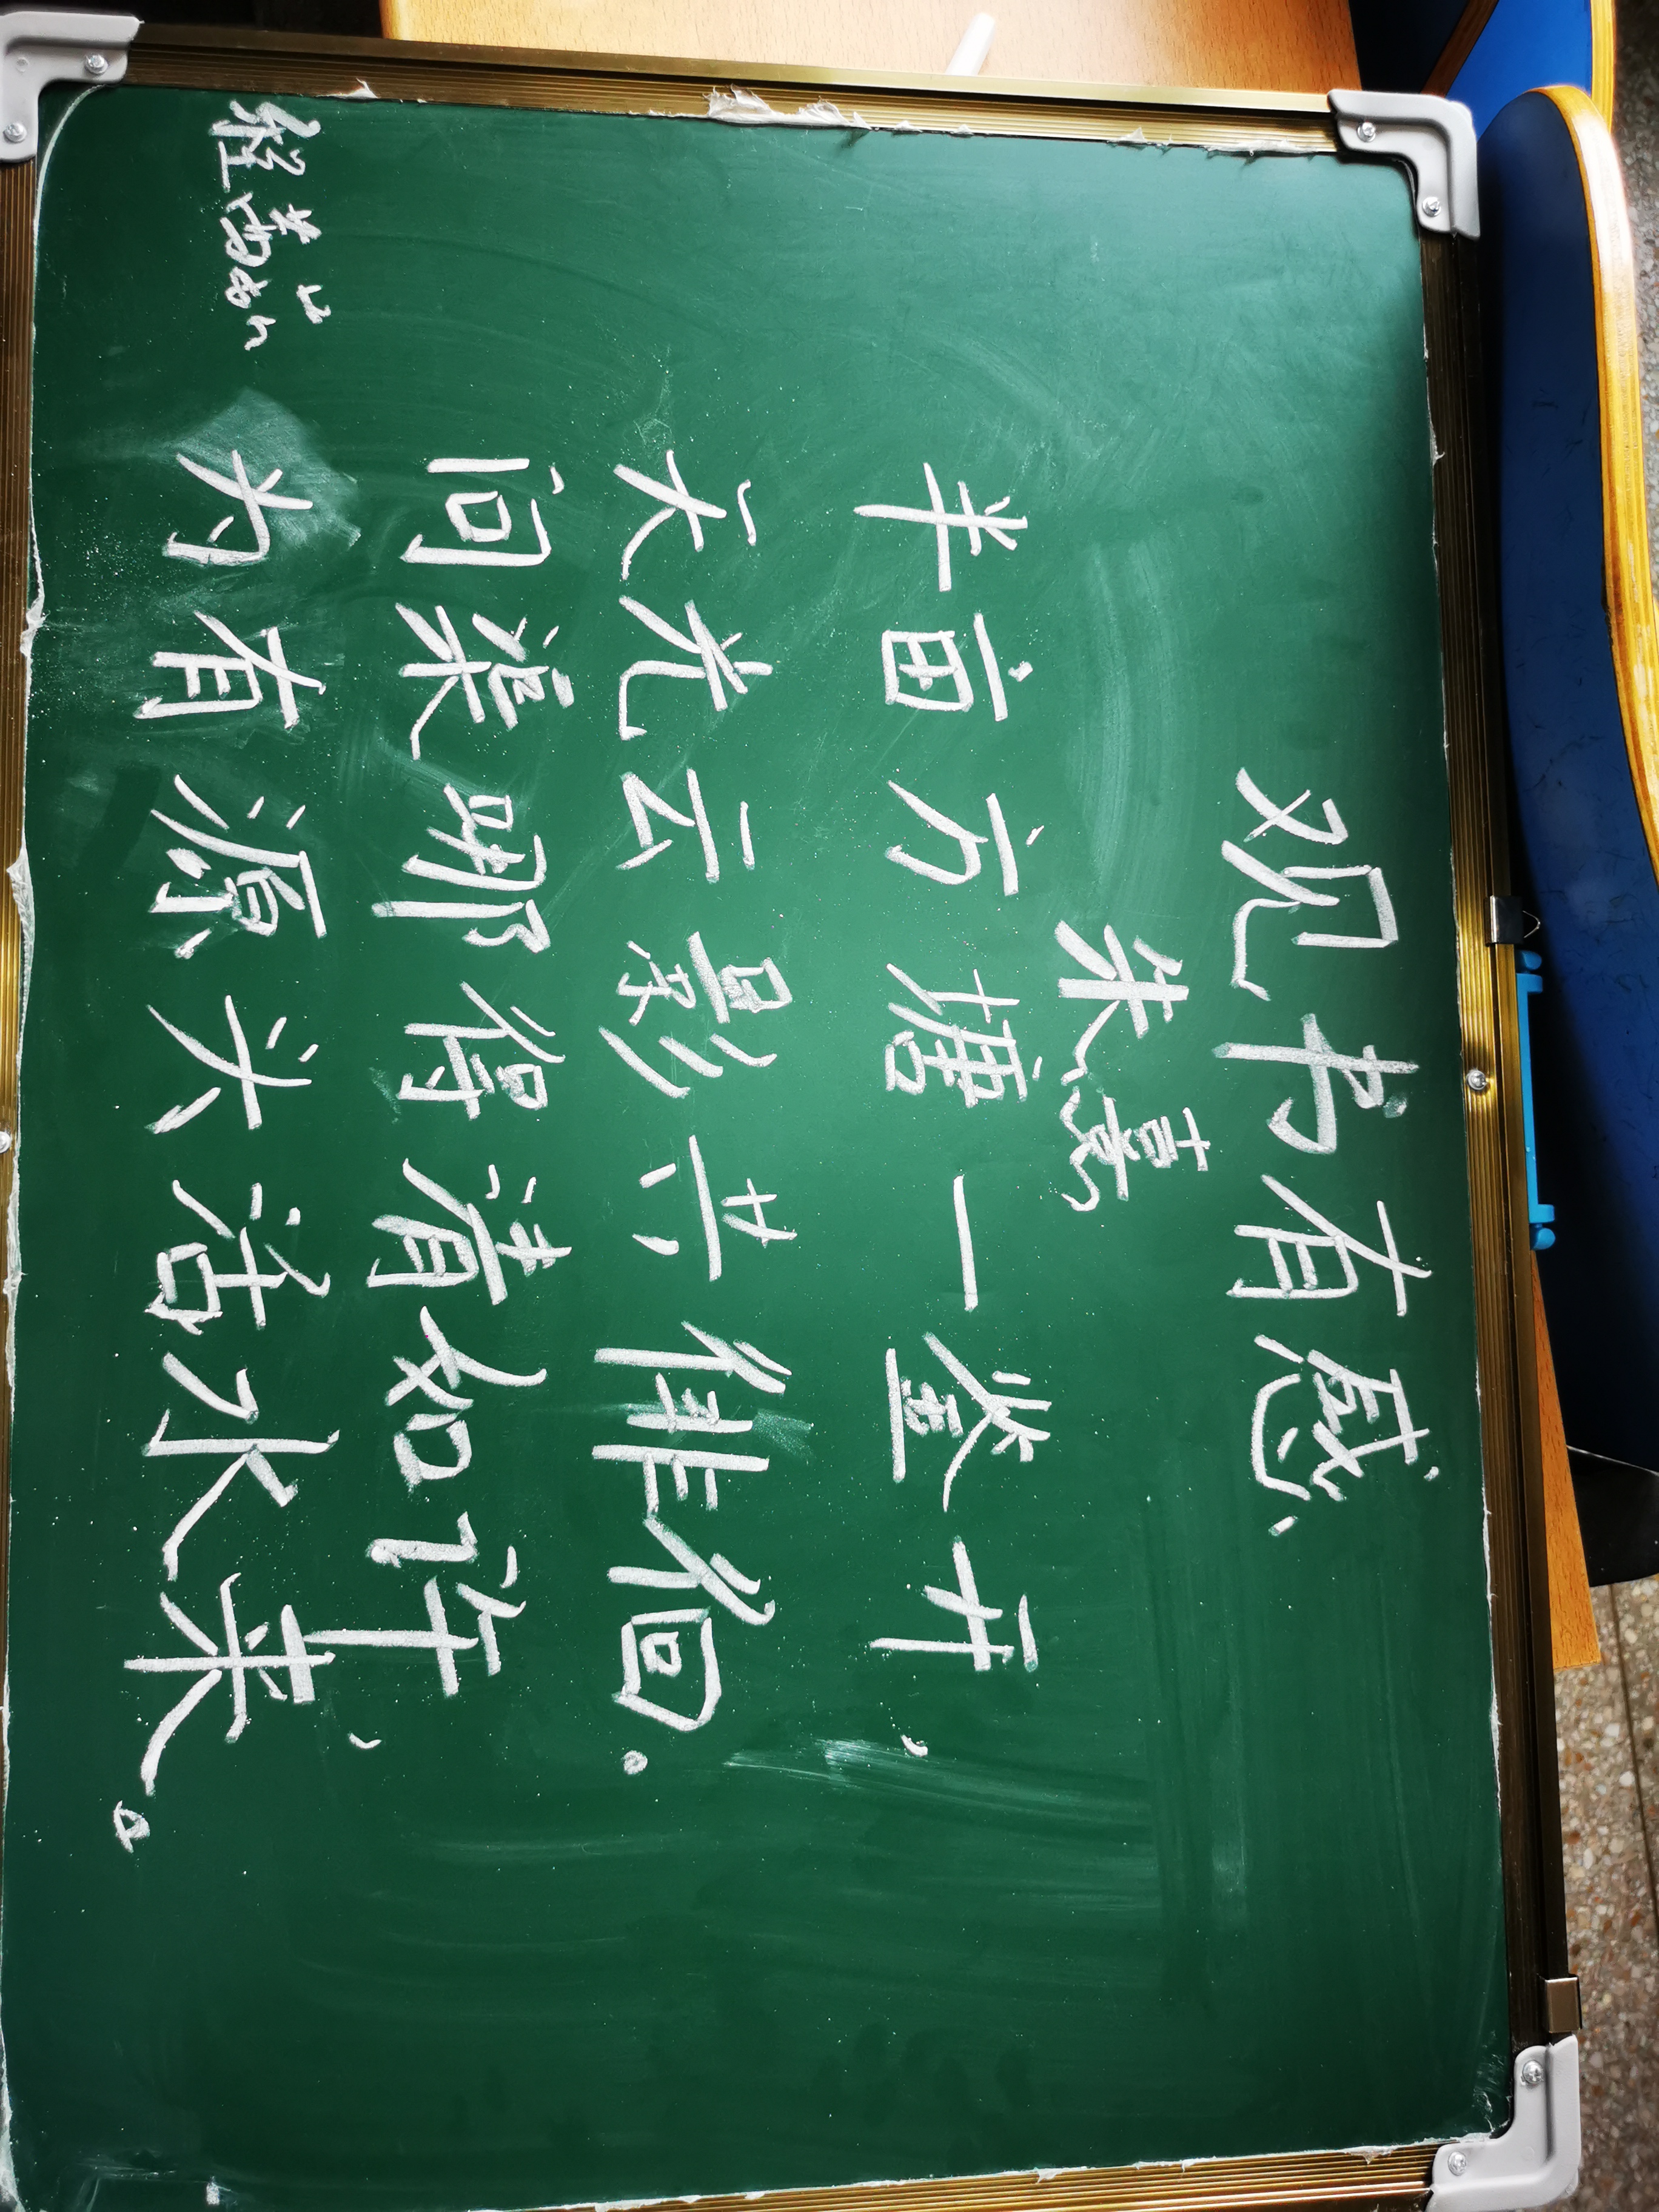 观书有感
朱熹
半亩方塘一鉴开，
天光云影共徘徊。
问渠哪得清如许，
为有源头活水来。